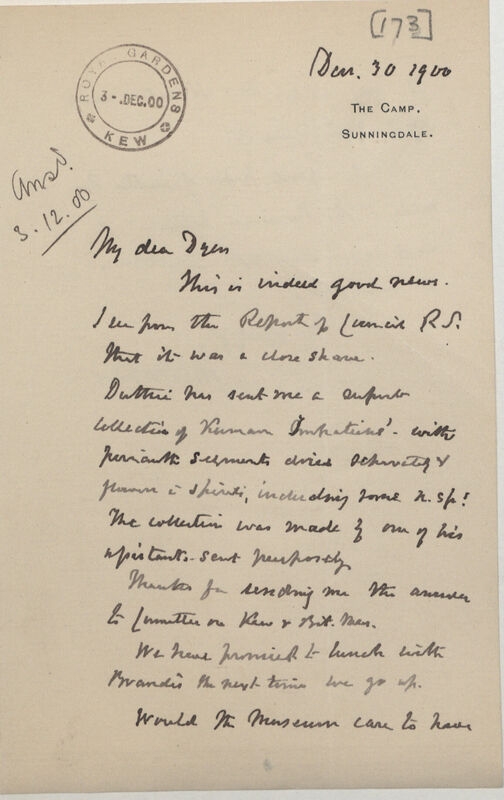 [173]
ROYAL GARDENS
3-.DEC.00
KEW
Ansd.
3.12.00
Den. 30 1900
THE CAMP.
SUNNINGDALE.
My dear Dyer
This is indeed good news.
I see from the Report of Council R.S.
that it was a close shave.
Duthie has sent me a superb
collection of Kumaon Impatiens' - with
perianth segments dried separately &
flowers in spirits, including some n.sp!
The collection was made by one of his
assistants - sent purposely
Thanks for sending me the answer
to Committee on Kew & Brit. Mus.
We have promised to lunch with
Brandis the next time we go up.
Would the Museum care to have